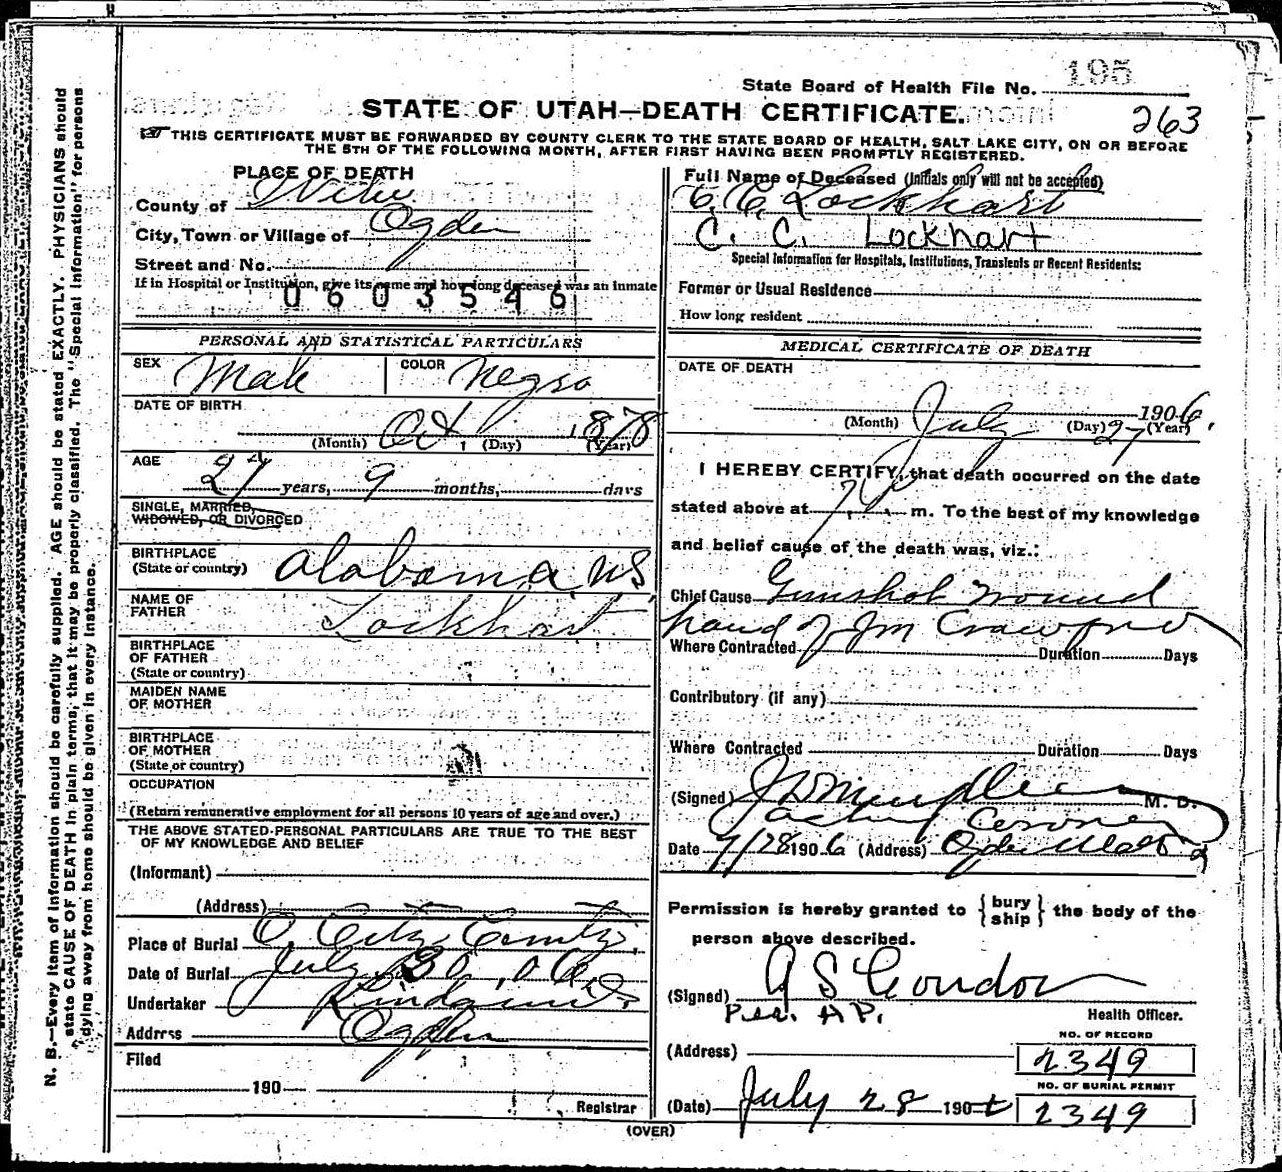 N. B.—Every item of information should be carefully supplied. AGE should be stated EXACTLY. PHYSICIANS should
state CAUSE OF DEATH in plain terms, that it may be properly classified. The "Special Information" for persons
dying away from home should be given in every instance.
State Board of Health File No. 195
STATE OF UTAH—DEATH CERTIFICATE.
263
THIS CERTIFICATE MUST BE FORWARDED BY COUNTY CLERK TO THE STATE BOARD OF HEALTH, SALT LAKE CITY, ON OR BEFORE
THE 5TH OF THE FOLLOWING MONTH, AFTER FIRST HAVING BEEN PROMPTLY REGISTERED.
PLACE OF DEATH
County of
City, Town or Village of Ogden
Street and No.
If in Hospital or Institution, give its name and how long deceased was an inmate
0603546
PERSONAL AND STATISTICAL PARTICULARS
SEX Male COLOR Negro
DATE OF BIRTH
(Month) Oct, (Day) 1878 (Year)
AGE
27 years, 9 months, days
SINGLE, MARRIED,
WIDOWED, OR DIVORCED
BIRTHPLACE
(State or country) Alabama, US
NAME OF
FATHER Lockhart
BIRTHPLACE
OF FATHER
(State or country)
MAIDEN NAME
OF MOTHER
BIRTHPLACE
OF MOTHER
(State or country)
OCCUPATION
(Return remunerative employment for all persons 10 years of age and over.)
THE ABOVE STATED PERSONAL PARTICULARS ARE TRUE TO THE BEST
OF MY KNOWLEDGE AND BELIEF
(Informant)
(Address)
Place of Burial O. City Cemty.
Date of Burial July 30, 06
Undertaker
Address Ogden
Filed
190
Registrar
Full Name of Deceased (Initials only will not be accepted)
C. C. Lockhart
C. C. Lockhart
Special Information for Hospitals, Institutions, Transients or Recent Residents:
Former or Usual Residence
How long resident
MEDICAL CERTIFICATE OF DEATH
DATE OF DEATH
(Month) July (Day) 27 1906. (Year)
I HEREBY CERTIFY, that death occurred on the date
stated above at m. To the best of my knowledge
and belief cause of the death was, viz.:
Chief Cause Gunshot Wound
hand of Jm Crawford
Where Contracted Duration Days
Contributory (if any)
Where Contracted Duration Days
(Signed) M. D.
Acting Coroner
Date 7/28 1906 (Address) Ogden Utah
Permission is hereby granted to {bury ship} the body of the
person above described.
(Signed) A S Condon
Per. A P. Health Officer.
(Address)
NO. OF RECORD
2349
NO. OF BURIAL PERMIT
(Date) July 28 190 2349
(OVER)